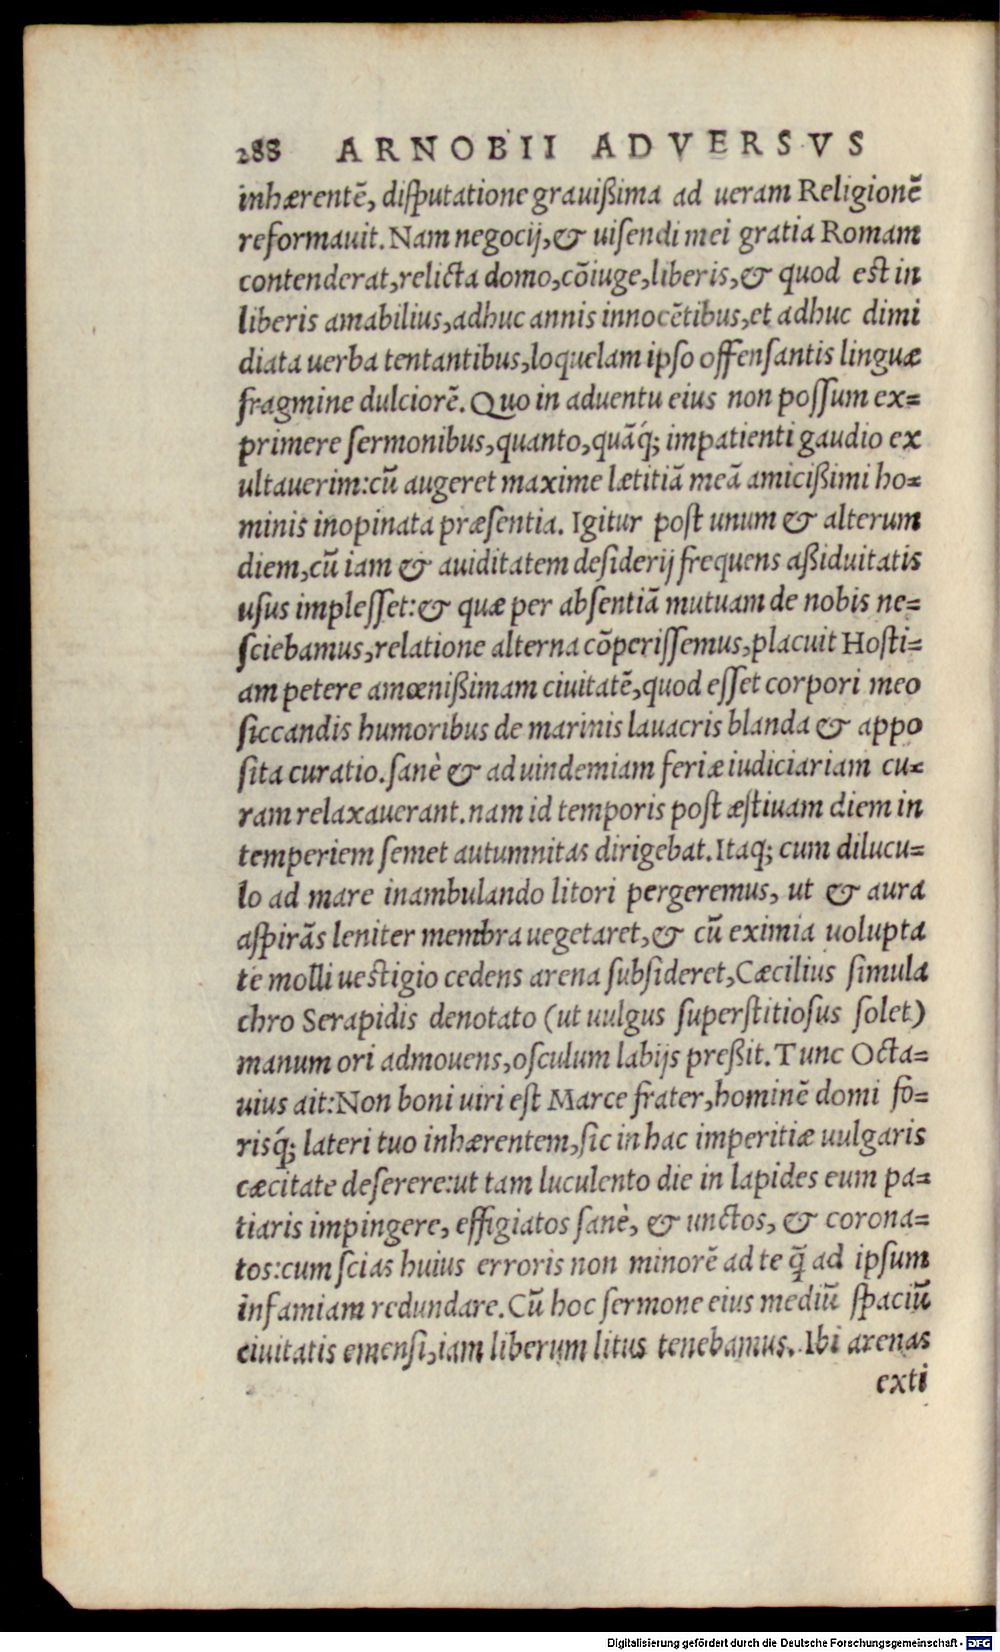 288 ARNOBII ADVERSVS
inhærentē, diſputatione grauißima ad ueram Religionē
reformauit. Nam negocij, & uiſendi mei gratia Romam
contenderat, relicta domo, cōiuge, liberis, & quod eſt in
liberis amabilius, adhuc annis innocētibus, et adhuc dimi
diata uerba tentantibus, loquelam ipſo offenſantis linguæ
fragmine dulciorē. Quo in aduentu eius non poſſum ex=
primere ſermonibus, quanto, quāq́; impatienti gaudio ex
ultauerim: cū augeret maxime lætitiā meā amicißimi ho=
minis inopinata præſentia. Igitur poſt unum & alterum
diem, cū iam & auiditatem deſiderij frequens aßiduitatis
uſus impleſſet: & quæ per abſentiā mutuam de nobis ne=
ſciebamus, relatione alterna cōperiſſemus, placuit Hoſti=
am petere amœnißimam ciuitatē, quod eſſet corpori meo
ſiccandis humoribus de marinis lauacris blanda & appo
ſita curatio. ſanè & ad uindemiam feriæ iudiciariam cu=
ram relaxauerant. nam id temporis poſt æſtiuam diem in
temperiem ſemet autumnitas dirigebat. Itaq; cum dilucu=
lo ad mare inambulando litori pergeremus, ut & aura
aſpirās leniter membra uegetaret, & cū eximia uolupta
te molli ueſtigio cedens arena ſubſideret, Cæcilius ſimula
chro Serapidis denotato (ut uulgus ſuperſtitioſus ſolet)
manum ori admouens, oſculum labijs preßit. Tunc Octa=
uius ait: Non boni uiri eſt Marce frater, hominē domi fo=
risq́; lateri tuo inhærentem, ſic in hac imperitiæ uulgaris
cæcitate deſerere: ut tam luculento die in lapides eum pa=
tiaris impingere, effigiatos ſanè, & unctos, & corona=
tos: cum ſcias huius erroris non minorē ad te q̄̃ ad ipſum
infamiam redundare. Cū hoc ſermone eius mediū ſpaciū
ciuitatis emenſi, iam liberum litus tenebamus. Ibi arenas
exti
Digitalisierung gefördert durch die Deutsche Forschungsgemeinschaft - DFG